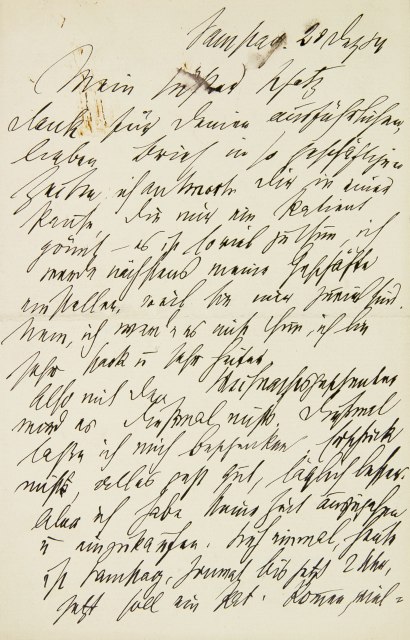 Samstag. 20 Dez 84
Mein süßer Schatz
dank für Deinen ausführlichen,
lieben Brief in so geschäftigen
Zeiten, ich antworte Dir in einer
Pause, die mir ein Patient
gönnt – es ist soviel zu thun, ich
werde nächstens meine Geschäfte
einstellen, weil sie mir zuviel sind.
Nein, ich werde es nicht thun, ich bin
sehr stark u sehr heiter.
Also mit den Weihnachtsgeschenken
wird es diesmal nichts. Diesmal
lasse ich mich beschenken, schicke
nichts, alles geht gut, täglich besser.
Aber ich habe keine Zeit auszugehen
u einzukaufen. Noch einmal, heute
ist Samstag, bis jetzt 2 Uhr,
jetzt soll ein kommen, viel-